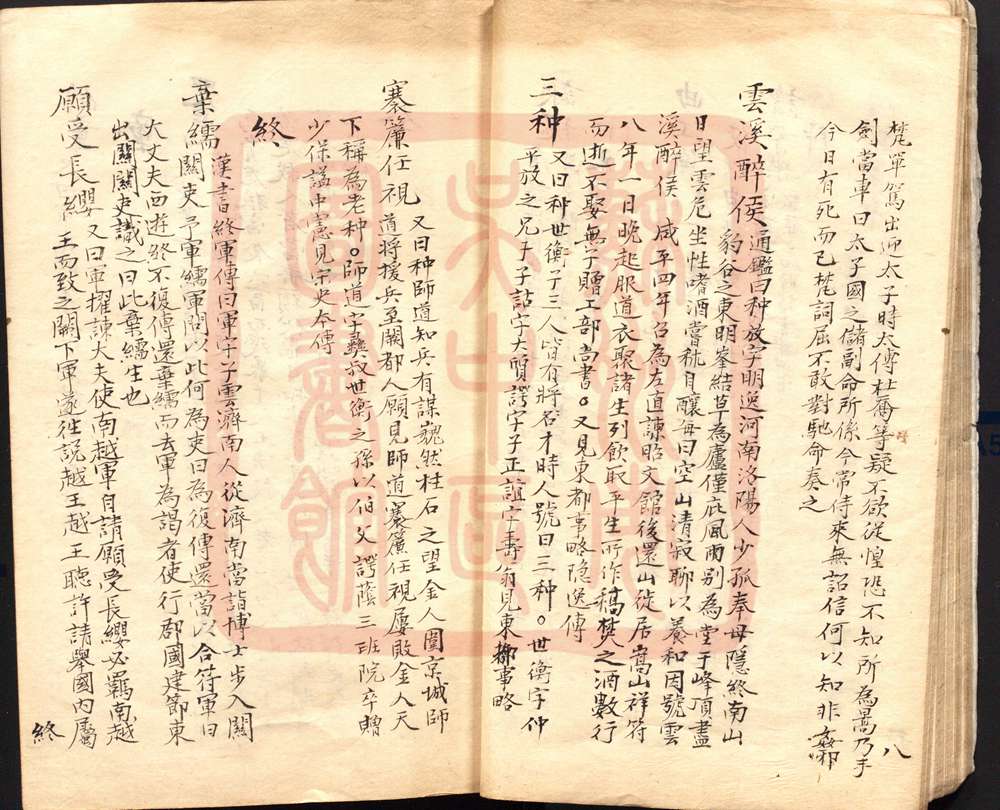 梵單駕出迎太子時太傅杜喬等疑不欲從惶恐不知所為暠乃手
劍當車曰太子國之儲副命所係今常侍來無詔信何以知非姦邪
今日有死而已梵詞屈不敢對馳命奏之
八
雲溪醉侯 通鑑曰种放字明逸河南洛陽人少孤奉母隱終南山
豹谷之東明峯結草為廬僅庇風雨別為堂于峰頂盡
日望雲危坐性嗜酒嘗秫自釀每曰空山清寂聊以養和因號雲
溪醉侯咸平四年召為左直諫昭文館後還山徙居嵩山祥符
八年一日晚起服道衣聚諸生列飲取平生所作稿焚之酒數行
而逝不娶無子贈工部尚書○又見東都事略隱逸傳
三种 又曰种世衡子三人皆有將名才時人號曰三种○世衡字仲
平放之兄子子詁字大質諤字子正誼字壽翁見東都事略
褰簾任視 又曰种師道知兵有謀巍然柱石之望金人圍京城師
道將援兵至闕都人願見師道褰簾任視屢敗金人天
下稱為老种○師道字彞叔世衡之孫以伯父諤蔭三班院卒贈
少保諡忠憲見宋史本傳
終
棄繻 漢書終軍傳曰軍字子雲濟南人從濟南當詣博士步入關
關吏予軍繻軍問以此何為吏曰為復傳還當以合符軍曰
大丈夫西遊終不復傳還棄繻而去軍為謁者使行郡國建節東
出關關吏識之曰此棄繻生也
願受長纓 又曰軍擢諫大夫使南越軍自請願受長纓必羈南越
王而致之闕下軍遂往說越王越王聽許請舉國內屬
終